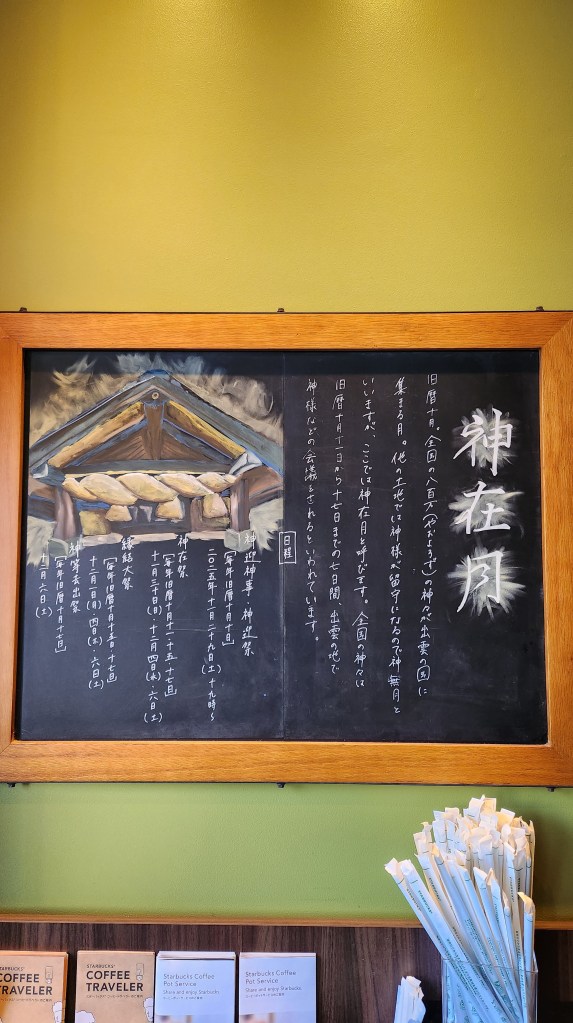 神在月
旧暦十月。全国の八百万(やおよろず)の神々が出雲の国に
集まる月。他の土地では神様が留守になるので神無月と
いいますが、ここでは神在月と呼びます。全国の神々は
旧暦十月十一日から十七日までの七日間、出雲の地で
神様などの会議をされるといわれています。
日程
神迎神事・神迎祭
[毎年旧暦十月十日]
二〇二五年十一月二十九日(土)十九時〜
神在祭
[毎年旧暦十月十一・十五・十七日]
十一月三十日(日)・十二月四日(木)・六日(土)
縁結大祭
[毎年旧暦十月十五日・十七日]
十二月
四日(木)・六日(土)
神等去出祭
[毎年旧暦十月十七日]
十二月六日(土)
STARBUCKS®
COFFEE
TRAVELER
STARBUCKS®
COFFEE
TRAVELER
Starbucks Coffee
Pot Service
Share and enjoy Starbucks
Starbucks Coffee
Pot Service
Share and enjoy Starbucks